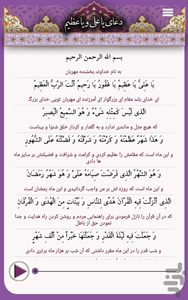 دعای یا علی و یا عظیم
بسم الله الرحمن الرحیم
به نام خداوند بخشنده مهربان
يَا عَلِيُّ يَا عَظِيمُ يَا غَفُورُ يَا رَحِيمُ أَنْتَ الرَّبُّ الْعَظِيمُ
ای خدای بلند مقام ای بزرگوار ای آمرزنده ای مهربان تویی خدای بزرگ
الَّذِي لَيْسَ كَمِثْلِهِ شَيْءٌ وَ هُوَ السَّمِيعُ الْبَصِيرُ
که هیچ مثل و مانندی ندارد و به گفتار و کردار خلق شنوا و بیناست
وَ هَذَا شَهْرٌ عَظَّمْتَهُ وَ كَرَّمْتَهُ وَ شَرَّفْتَهُ وَ فَضَّلْتَهُ عَلَى الشُّهُورِ
و این ماه است که مقامش را عظیم کردی و کرامت و شرافت و فضیلتش بر سایر ماه ها دادی
وَ هُوَ الشَّهْرُ الَّذِي فَرَضْتَ صِيَامَهُ عَلَيَّ وَ هُوَ شَهْرُ رَمَضَانَ
و این ماه که روزه اش بر من واجب گردانیدی و این ماه رمضان است
الَّذِي أَنْزَلْتَ فِيهِ الْقُرْآنَ هُدًى لِلنَّاسِ وَ بَيِّنَاتٍ مِنَ الْهُدَى وَ الْفُرْقَانِ
که در آن قرآن را نازل فرمودی برای راهنمایی مردم و روشن کردن راه هدایت و جدا نمودن حق از باطل
وَ جَعَلْتَ فِيهِ لَيْلَةَ الْقَدْرِ وَ جَعَلْتَهَا خَيْراً مِنْ أَلْفِ شَهْرٍ
و شب قدر را در این ماه مقرر داشتی که آن شب بر هزار ماه برتری دادی